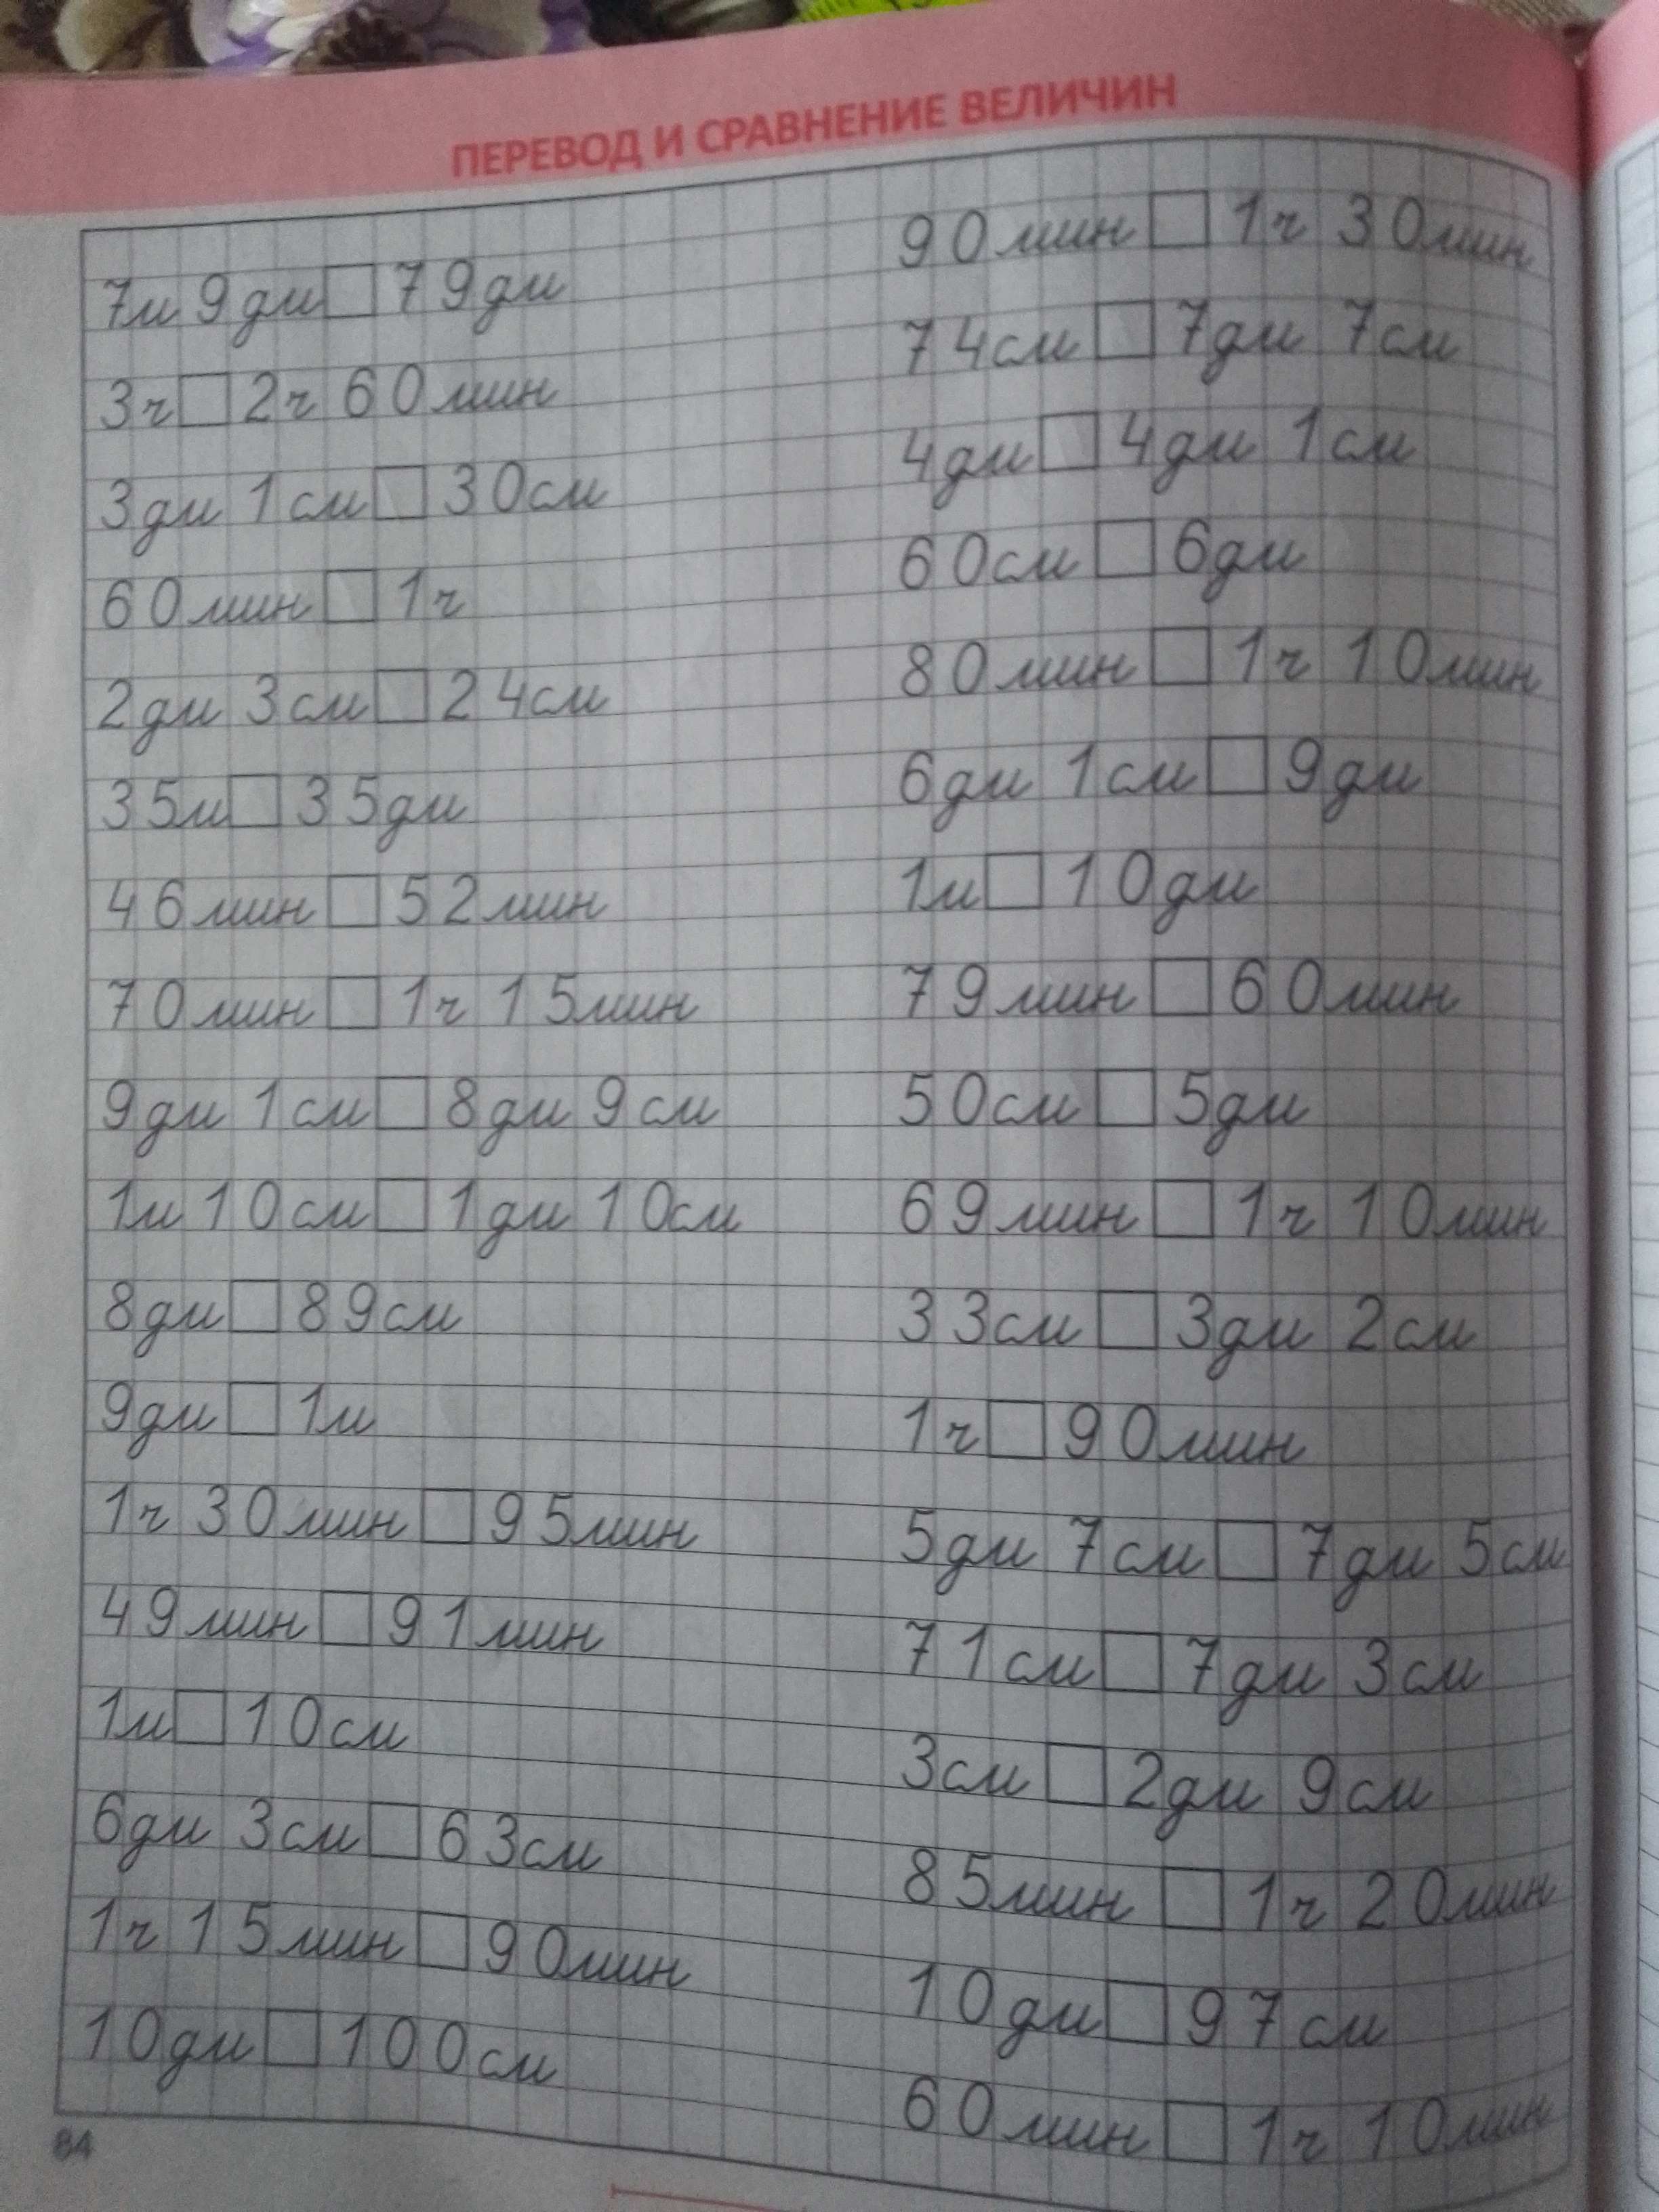 ПЕРЕВОД И СРАВНЕНИЕ ВЕЛИЧИН
7м 9дм □ 79дм
3ч □ 2ч 60мин
3дм 1см □ 30см
60мин □ 1ч
2дм 3см □ 24см
35м □ 35дм
46мин □ 52мин
70мин □ 1ч 15мин
9дм 1см □ 8дм 9см
1м 10см □ 1дм 10см
8дм □ 89см
9дм □ 1м
1ч 30мин □ 95мин
49мин □ 91мин
1м □ 10см
6дм 3см □ 63см
1ч 15мин □ 90мин
10дм □ 100см
90мин □ 1ч 30мин
74см □ 7дм 7см
4дм □ 4дм 1см
60см □ 6дм
80мин □ 1ч 10мин
6дм 1см □ 9дм
1м □ 10дм
79мин □ 60мин
50см □ 5дм
69мин □ 1ч 10мин
33см □ 3дм 2см
1ч □ 90мин
5дм 7см □ 7дм 5см
71см □ 7дм 3см
3см □ 2дм 9см
85мин □ 1ч 20мин
10дм □ 97см
60мин □ 1ч 10мин
84